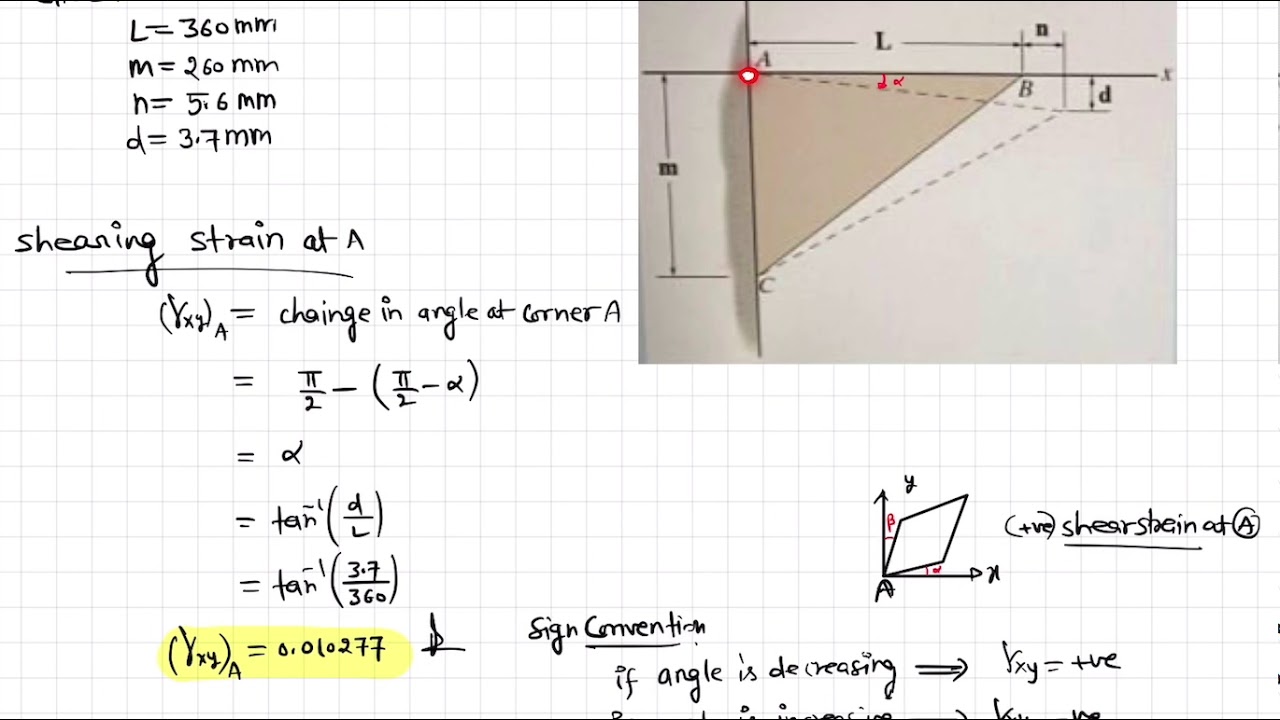 L = 360 mm
m = 260 mm
n = 5.6 mm
d = 3.7 mm
L
n
A
α
B
x
d
m
C
shearing strain at A
(γxy)A = chainge in angle at corner A
= π/2 − (π/2 − α)
= α
= tan⁻¹(d/L)
= tan⁻¹(3.7/360)
(γxy)A = 0.010277
y
β
α
A
x
(+ve) shear strain at A
Sign Convention
if angle is decreasing ⟹ γxy = +ve